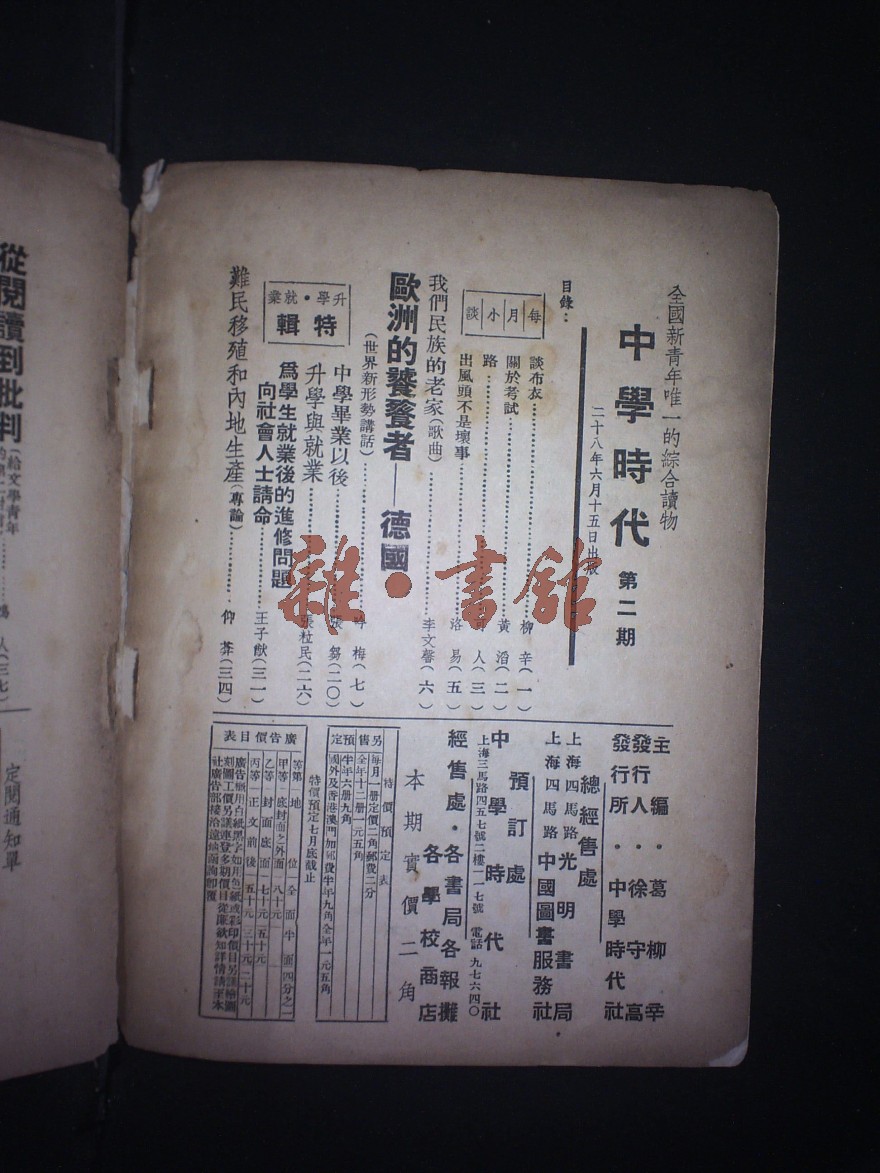 全國新青年唯一的綜合讀物
中學時代 第二期
二十八年六月十五日出版
目錄：
每月小談
談布衣 柳辛(一)
關於考試 黃滔(二)
路 人(三)
出風頭不是壞事 洛易(五)
我們民族的老家(歌曲) 李文馨(六)
歐洲的饕餮者——德國
(世界新形勢講話) 吟梅(七)
升學·就業
特輯
中學畢業以後 芻(二〇)
升學與就業 張粒民(二六)
為學生就業後的進修問題
向社會人士請命 王子猷(三一)
難民移殖和內地生產(專論) 仰莽(三四)
主編·葛柳辛
發行人·徐守高
發行所·中學時代社
總經售處
上海四馬路光明書局
上海四馬路中國圖書服務社
預訂處
中學時代社
上海三馬路四五七號二樓一一七號 電話九七六四〇
經售處·各書局各報攤
各學校商店
本期實價二角
特價預定表
另售 每月一册定價二角郵費二分
預定 全年十二册一元五角
半年六册九角
國外及香港澳門加郵費半年九角全年一元五角
特價預定七月底截止
廣告價目表
等第 地位 全面 半面 四分之一
甲等 底封面之外面 八十元
乙等 封面底面 七十元 五十元
丙等 正文前後 五十元 三十元 二十元
廣告概用白紙黑字如用色紙或彩印價目另議繪圖
刻圖工價另議連登多期價目從廉欲知詳情請至本
社廣告部接洽遠埠函詢即覆
從閱讀到批判
(給文學青年
人(三七)
定閱通知單
雜·書館